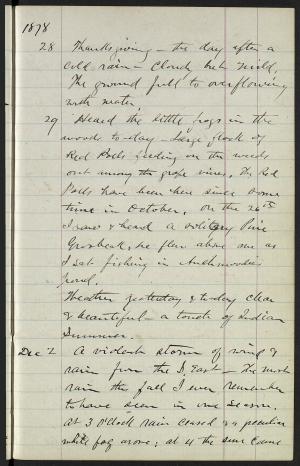 1878
28 Thanksgiving – the day after a
cold rain – Cloudy but mild,
The ground full to overflowing
with water,
29 Heard the little frogs in the
woods to-day – Large flock of
Red Polls feeding on the weeds
out among the grape vines, The Red
Polls have been here since some
time in October. On the 26th
I saw & heard a solitary Pine
Grosbeak, he flew above me as
I sat fishing in
pond.
Weather yesterday & to-day clear
& beautiful – a touch of Indian
Summer.
Dec 2 A violent storm of wind &
rain from the S. East – The most
rain this fall I ever remember
to have seen in one season.
at 3 O'clock rain ceased & a peculiar
white fog arose; at 4 the sun came